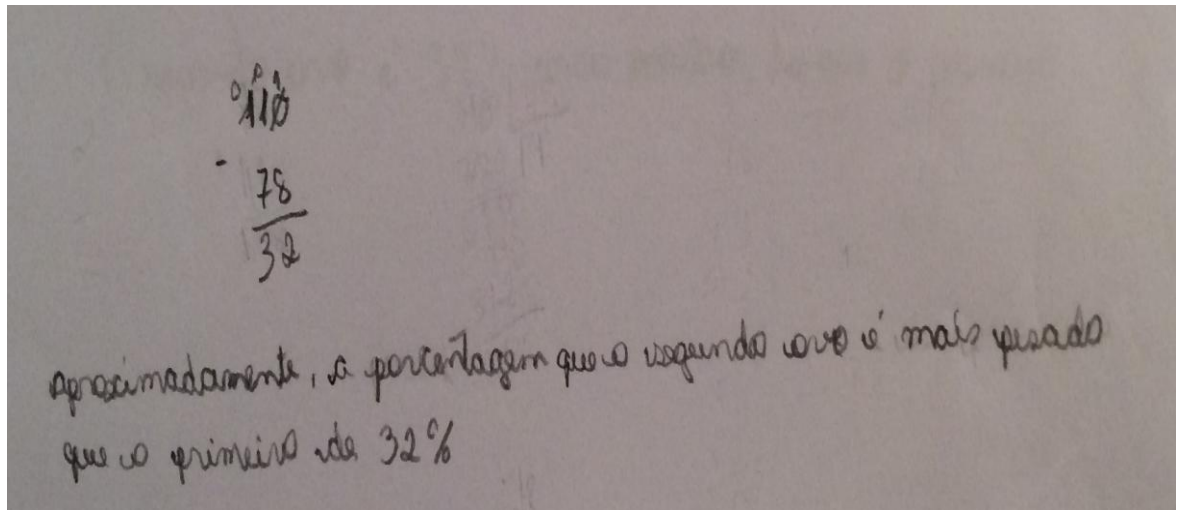 0 0 1
110
-
78
32
Aproximadamente, a porcentagem que o segundo ovo é mais pesado
que o primeiro de 32%